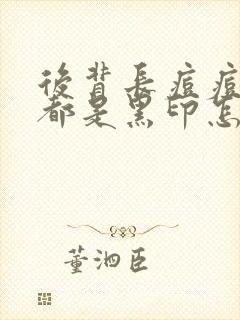 後背長痘痘
都是黑印怎
董泗臣